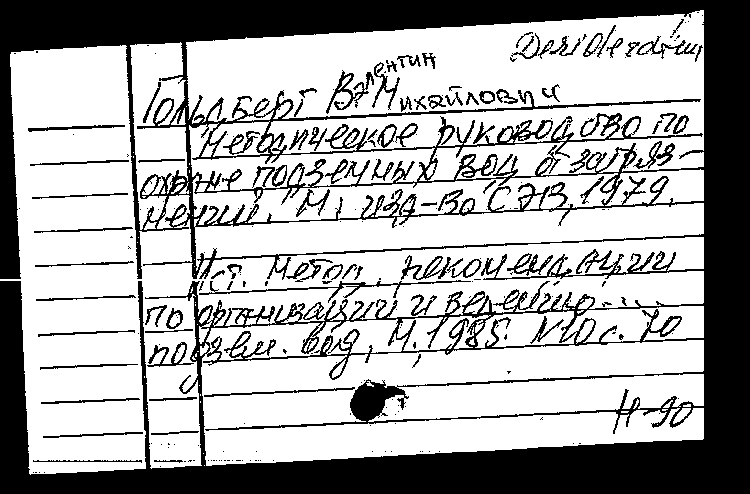 Desiderata
Гольдберг Валентин Михайлович
Методическое руководство по
охране подземных вод от загряз-
нений". М: изд-во СЭВ, 1979.
Ист. Метод. рекомендации
по организации и ведению....
подзем. вод, М., 1985. N10 с. 70
Н-90